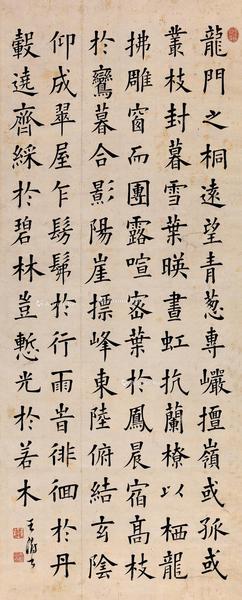 龍門之桐遠望青葱專巖擅嶺或孤或
叢枝封暮雪葉暎晝虹抗蘭橑以栖龍
拂雕窗而團露喧密葉於鳳晨宿高枝
於鸞暮合影陽崖摽峰東陸俯結玄陰
仰成翠屋乍髣髴於行雨旹徘徊於丹
轂遶齊綵於碧林豈慙光於若木